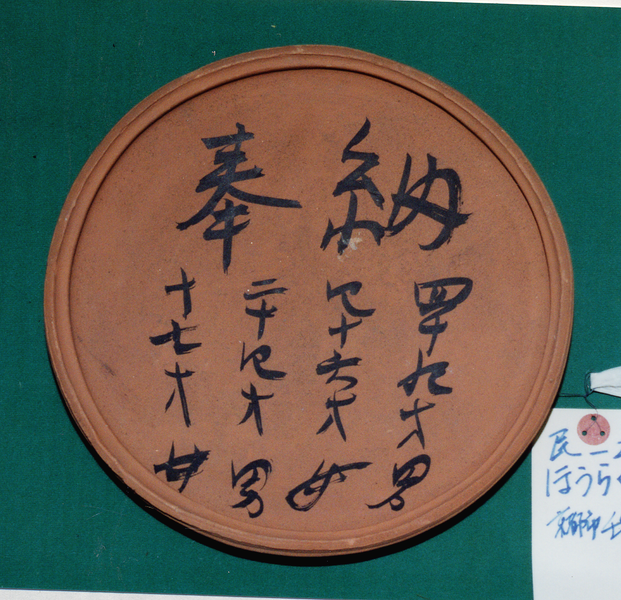 奉納
四十九才男
四十六才女
二十四才男
十七才女
民二
ほうらく